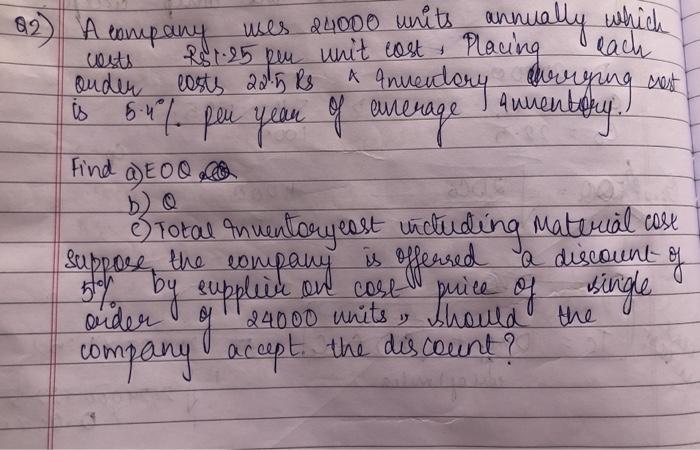 Q2) A company uses 24000 units annually which
costs Rs 1.25 per unit cost, Placing each
order costs 22.5 Rs & Inventory carrying cost
is 5.4% per year of average Inventory.
Find a) EOQ
b) Q
c) Total Inventory cost including Material cost
Suppose, the company is offersed a discount of
5% by supplier on cost price of single
order of 24000 units, should the
company accept the discount?